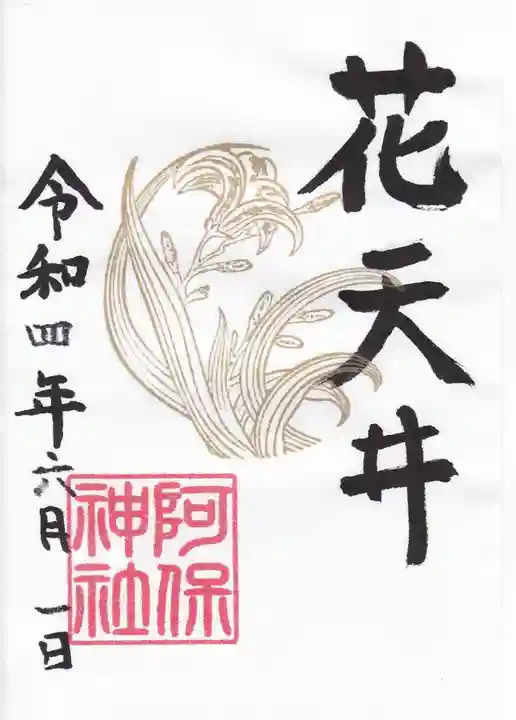 花天井
令和四年六月一日
阿保
神社